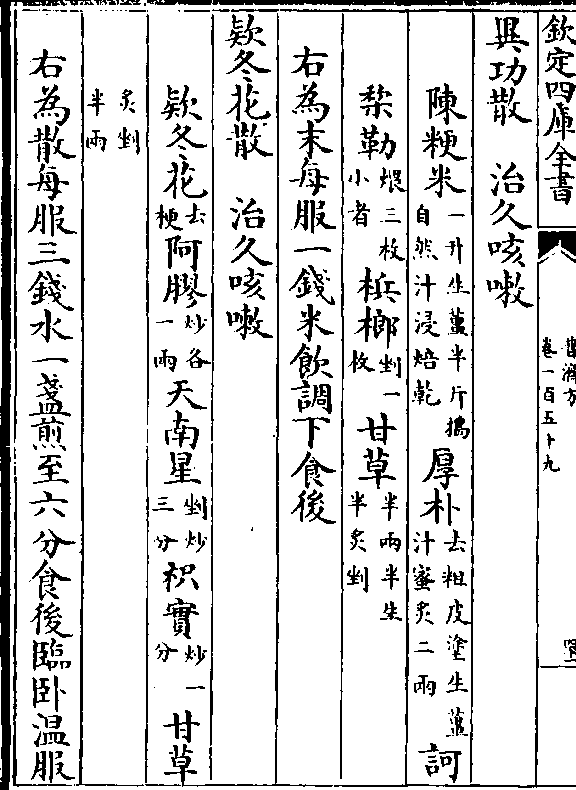 欽定四庫全書
普濟方
卷一百五十九
異功散　治久咳嗽
陳粳米一升生薑半斤擣自然汁浸焙乾厚朴去粗皮塗生薑汁蜜炙二兩訶
棃勒煨三枚小者梹榔剉一枚甘草半兩半生半炙剉
右為末每服一錢米飲調下食後
欵冬花散　治久咳嗽
欵冬花去梗阿膠炒各一兩天南星剉炒三分枳實炒一分甘草
炙剉半兩
右為散每服三錢水一盞煎至六分食後臨卧温服